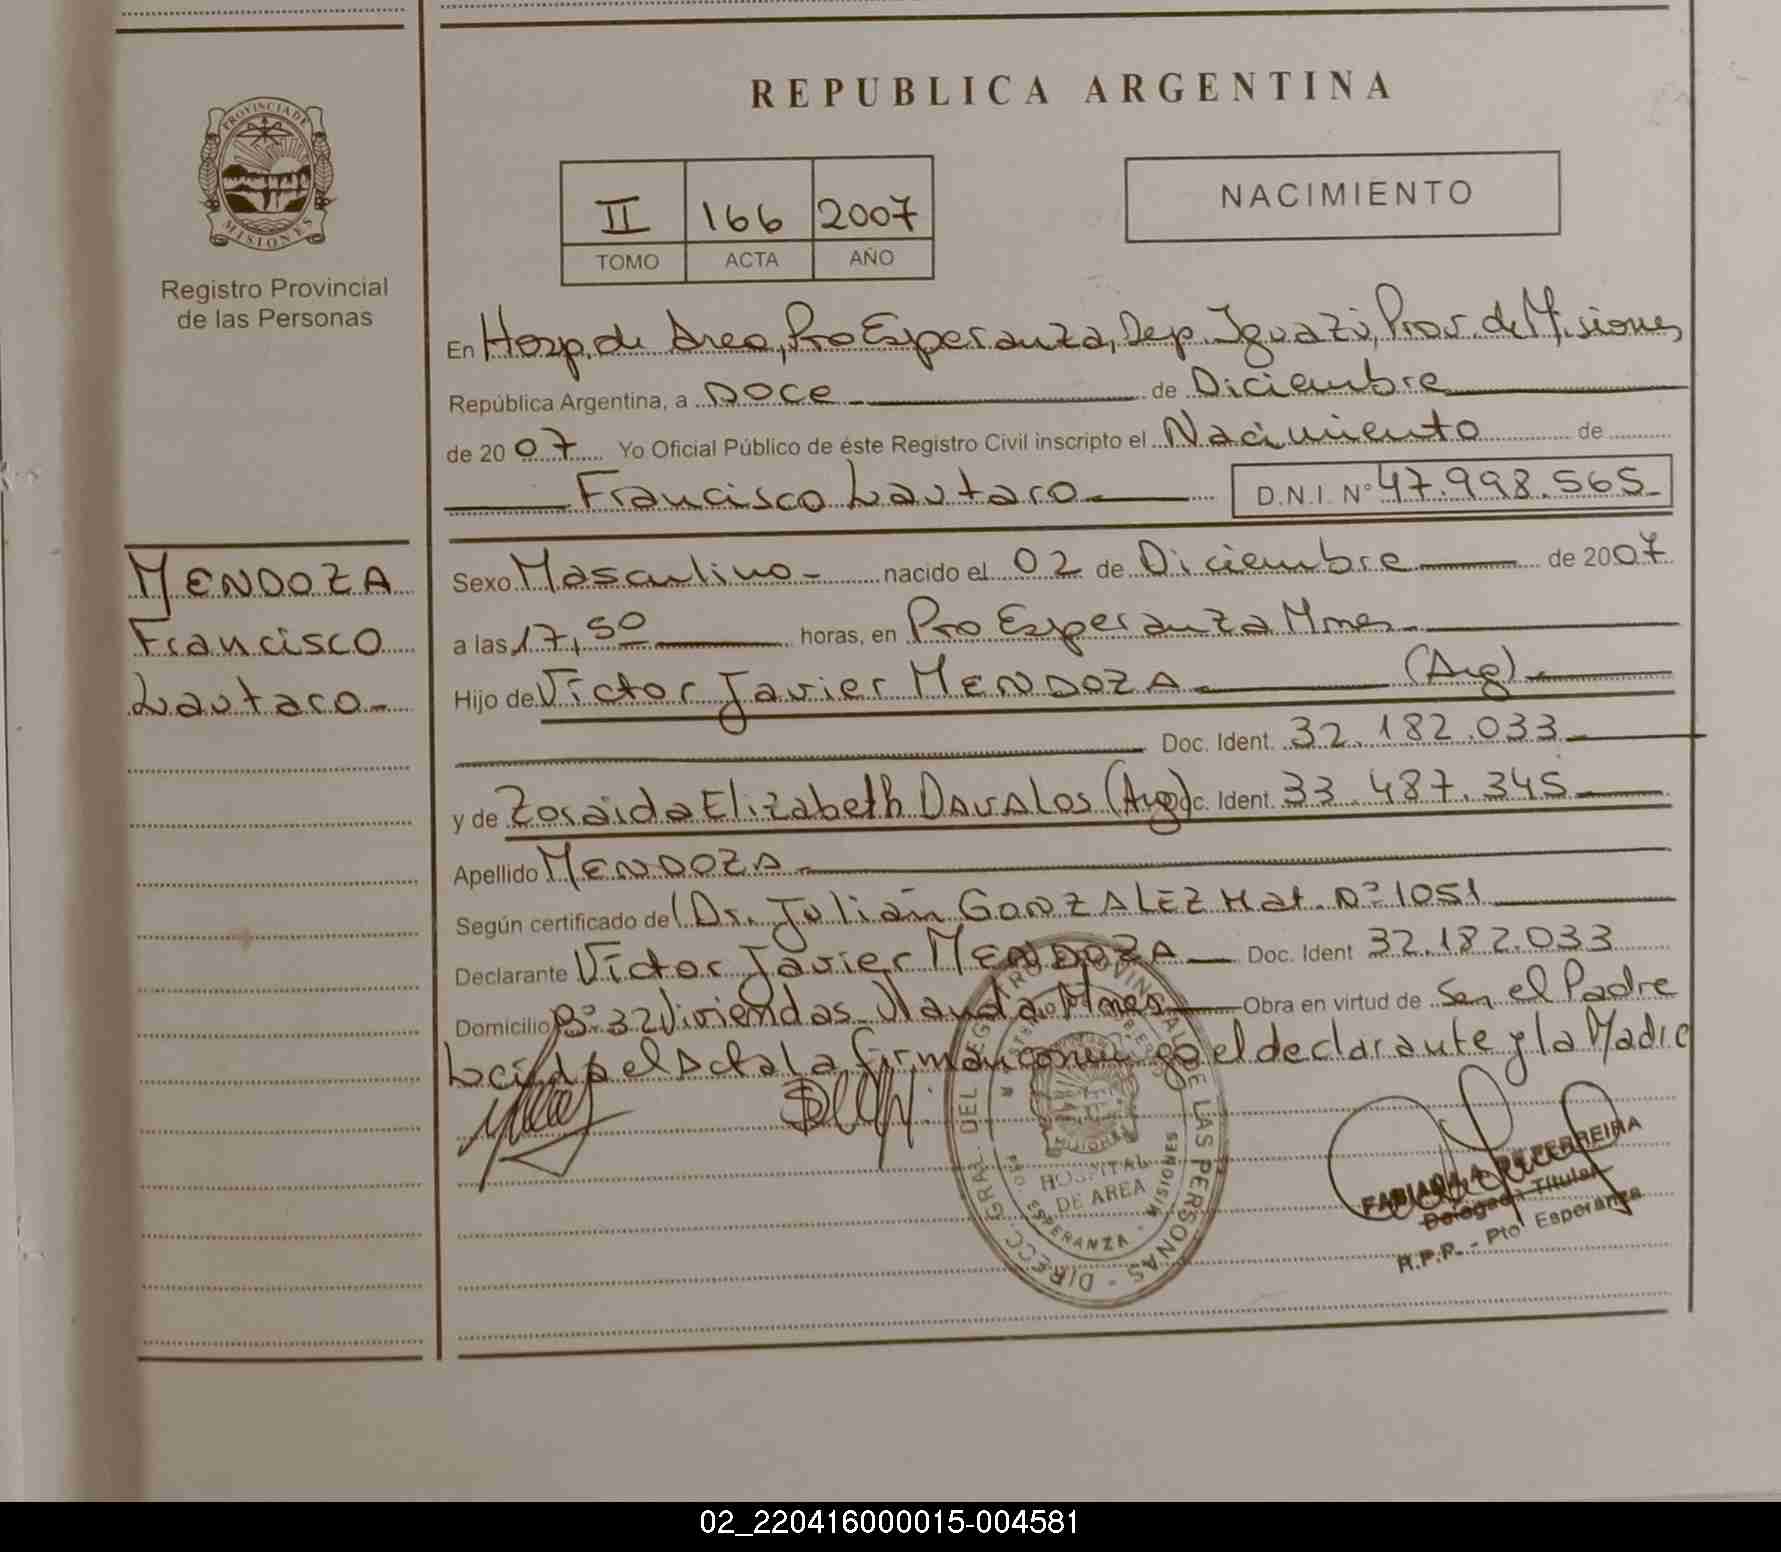 REPUBLICA ARGENTINA
PROVINCIA DE MISIONES
Registro Provincial
de las Personas
II 166 2007
TOMO ACTA AÑO
NACIMIENTO
En Hosp. de Area, Pto Esperanza, Dep. Iguazú, Prov. de Misiones
República Argentina, a Doce de Diciembre
de 2007 Yo Oficial Público de éste Registro Civil inscripto el Nacimiento de
Francisco Lautaro D.N.I. N° 47.998.565
MENDOZA
Francisco
Lautaro
Sexo Masculino nacido el 02 de Diciembre de 2007
a las 17,50 horas, en Pto Esperanza Mnes
Hijo de Victor Javier MENDOZA (Arg)
Doc. Ident. 32.182.033
y de Zoraida Elizabeth DAVALOS (Arg) Doc. Ident. 33.487.345
Apellido MENDOZA
Según certificado de Dr. Julián GONZALEZ Mat. N° 1051
Declarante Victor Javier MENDOZA Doc. Ident 32.182.033
Domicilio B° 32 Viviendas Wanda Mnes Obra en virtud de Ser el Padre
Leida el Acta la firman conmigo el declarante y la Madre
DIRECC. GRAL. DEL REGISTRO PROVINCIAL DE LAS PERSONAS
HOSPITAL
DE AREA
PTO. ESPERANZA - MISIONES
FABIANA FERREIRA
Delegada Titular
R.P.P. - Pto Esperanza
02_220416000015-004581